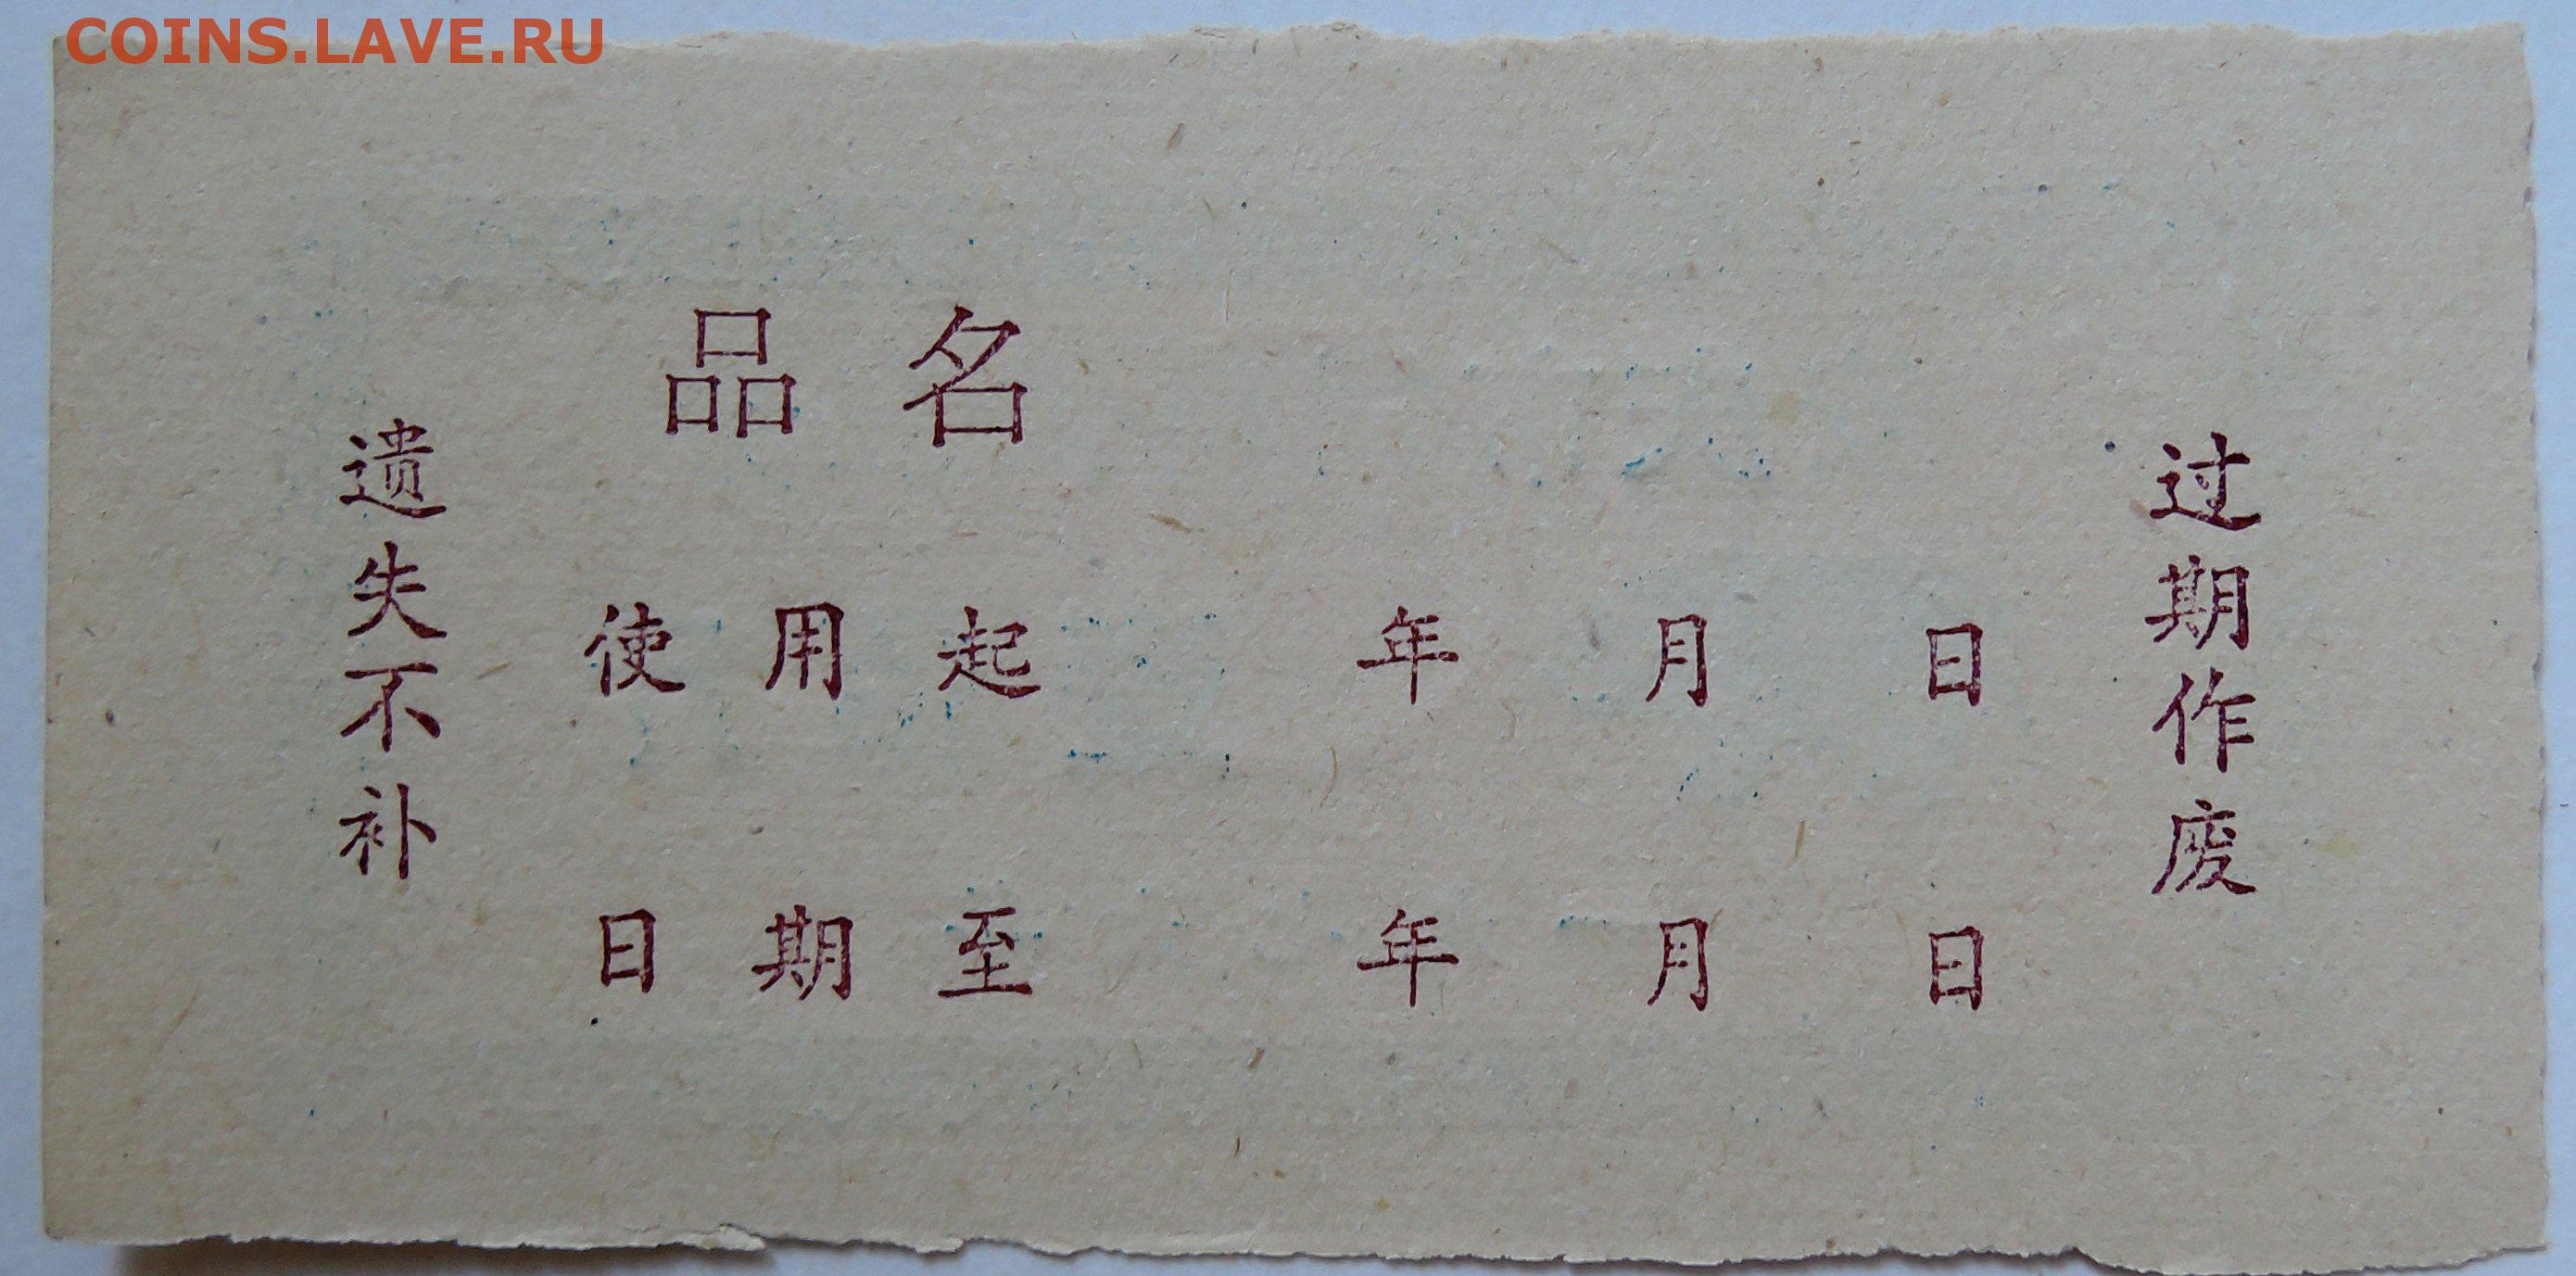 COINS.LAVE.RU
品名
遗失不补
使用起 年 月 日
日期至 年 月 日
过期作废